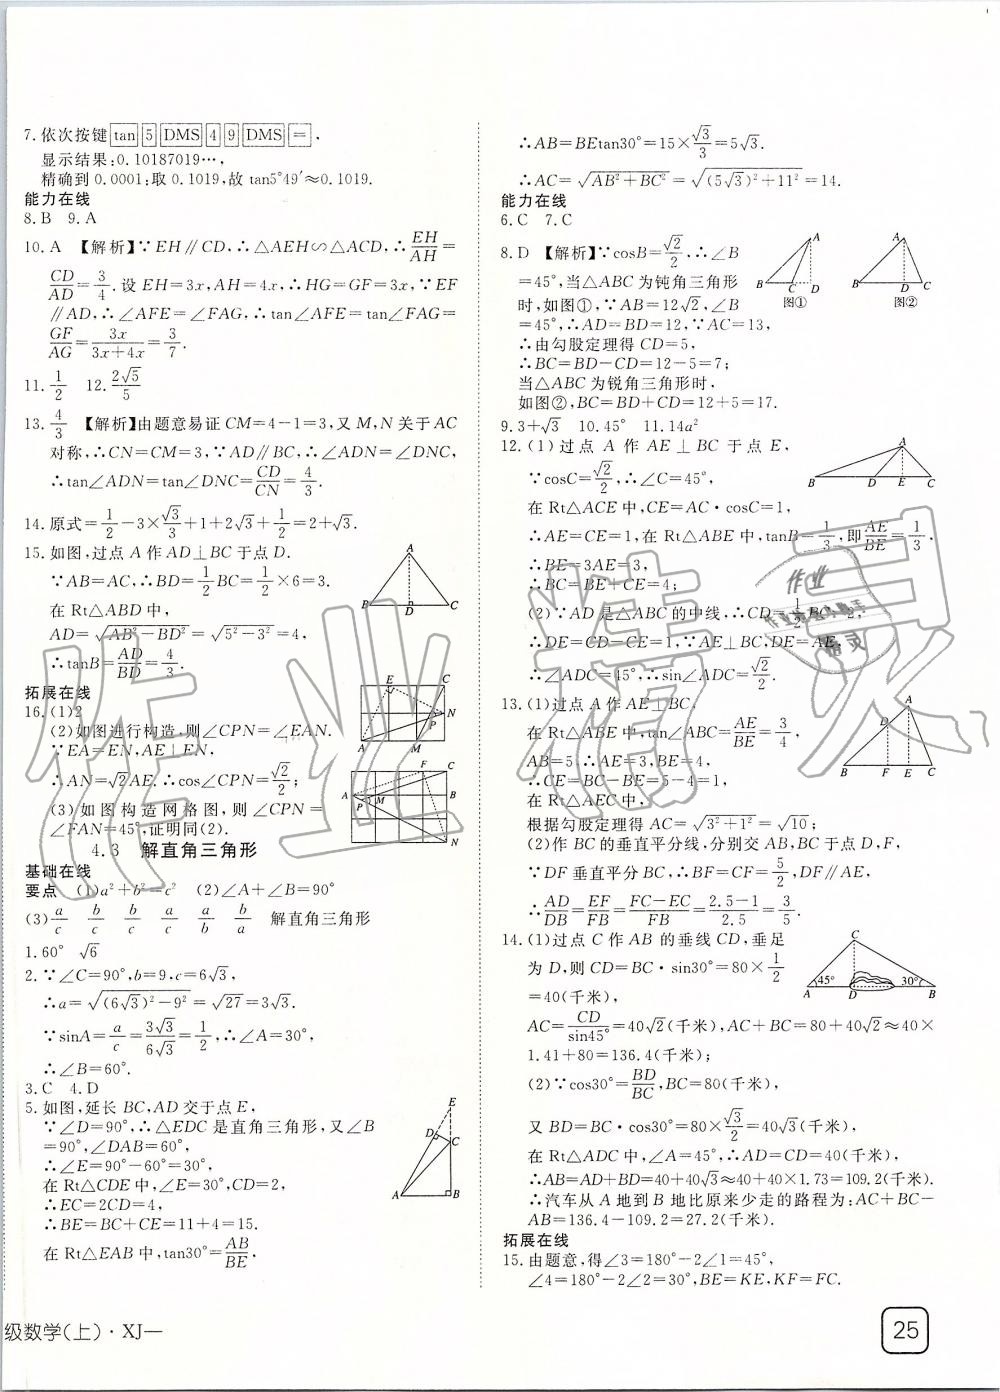 7.依次按键 tan 5 DMS 4 9 DMS = ,
显示结果:0.10187019…,
精确到 0.0001:取 0.1019,故 tan5°49′≈0.1019.
能力在线
8.B 9.A
10.A 【解析】∵EH∥CD,∴△AEH∽△ACD,∴EH/AH=
CD/AD=3/4.设 EH=3x,AH=4x,∴HG=GF=3x,∵EF
∥AD,∴∠AFE=∠FAG,∴tan∠AFE=tan∠FAG=
GF/AG=3x/(3x+4x)=3/7.
11.1/2 12.2√5/5
13.4/3 【解析】由题意易证 CM=4-1=3,又 M,N 关于 AC
对称,∴CN=CM=3,∵AD∥BC,∴∠ADN=∠DNC,
∴tan∠ADN=tan∠DNC=CD/CN=4/3.
14.原式=1/2-3×√3/3+1+2√3+1/2=2+√3.
15.如图,过点 A 作 AD⊥BC 于点 D.
∵AB=AC,∴BD=1/2BC=1/2×6=3.
在 Rt△ABD 中,
AD=√(AB²-BD²)=√(5²-3²)=4,
∴tanB=AD/BD=4/3.
A
B D C
拓展在线
16.(1)2
(2)如图进行构造,则∠CPN=∠EAN.
∵EA=EN,AE⊥EN,
∴AN=√2AE,∴cos∠CPN=√2/2;
(3)如图构造网格图,则∠CPN=
∠FAN=45°,证明同(2).
E
N
P
A M
F C
A M B
P
N
4.3 解直角三角形
基础在线
要点 (1)a²+b²=c² (2)∠A+∠B=90°
(3)a/c b/c b/c a/c a/b b/a 解直角三角形
1.60° √6
2.∵∠C=90°,b=9,c=6√3,
∴a=√((6√3)²-9²)=√27=3√3.
∵sinA=a/c=3√3/6√3=1/2,∴∠A=30°,
∴∠B=60°.
3.C 4.D
5.如图,延长 BC,AD 交于点 E,
∵∠D=90°,∴△EDC 是直角三角形,又∠B
=90°,∠DAB=60°,
∴∠E=90°-60°=30°,
在 Rt△CDE 中,∠E=30°,CD=2,
∴EC=2CD=4,
∴BE=BC+CE=11+4=15.
在 Rt△EAB 中,tan30°=AB/BE,
E
D
C
A B
∴AB=BEtan30°=15×√3/3=5√3,
∴AC=√(AB²+BC²)=√((5√3)²+11²)=14.
能力在线
6.C 7.C
8.D 【解析】∵cosB=√2/2,∴∠B
=45°,当△ABC 为钝角三角形
时,如图①,∵AB=12√2,∠B
=45°,∴AD=BD=12,∵AC=13,
∴由勾股定理得 CD=5,
∴BC=BD-CD=12-5=7;
当△ABC 为锐角三角形时,
如图②,BC=BD+CD=12+5=17.
A
B C D
图①
A
B D C
图②
9.3+√3 10.45° 11.14a²
12.(1)过点 A 作 AE⊥BC 于点 E,
∵cosC=√2/2,∴∠C=45°,
在 Rt△ACE 中,CE=AC·cosC=1,
∴AE=CE=1,在 Rt△ABE 中,tanB=1/3,即AE/BE=1/3,
∴BE=3AE=3,
∴BC=BE+CE=4;
(2)∵AD 是△ABC 的中线,∴CD=1/2BC=2,
∴DE=CD-CE=1,∵AE⊥BC,DE=AE,
∴∠ADC=45°,∴sin∠ADC=√2/2.
A
B D E C
13.(1)过点 A 作 AE⊥BC,
在 Rt△ABE 中,tan∠ABC=AE/BE=3/4,
AB=5,∴AE=3,BE=4,
∴CE=BC-BE=5-4=1,
在 Rt△AEC 中,
根据勾股定理得 AC=√(3²+1²)=√10;
(2)作 BC 的垂直平分线,分别交 AB,BC 于点 D,F,
∵DF 垂直平分 BC,∴BF=CF=5/2,DF∥AE,
∴AD/DB=EF/FB=(FC-EC)/FB=(2.5-1)/2.5=3/5.
A
D
B F E C
14.(1)过点 C 作 AB 的垂线 CD,垂足
为 D,则 CD=BC·sin30°=80×1/2
=40(千米),
AC=CD/sin45°=40√2(千米),AC+BC=80+40√2≈40×
1.41+80=136.4(千米);
(2)∵cos30°=BD/BC,BC=80(千米),
又 BD=BC·cos30°=80×√3/2=40√3(千米),
在 Rt△ADC 中,∠A=45°,∴AD=CD=40(千米),
∴AB=AD+BD=40+40√3≈40+40×1.73=109.2(千米).
∴汽车从 A 地到 B 地比原来少走的路程为:AC+BC-
AB=136.4-109.2=27.2(千米).
C
45° 30°
A D B
拓展在线
15.由题意,得∠3=180°-2∠1=45°,
∠4=180°-2∠2=30°,BE=KE,KF=FC.
级数学(上)·XJ—
25
作业精灵